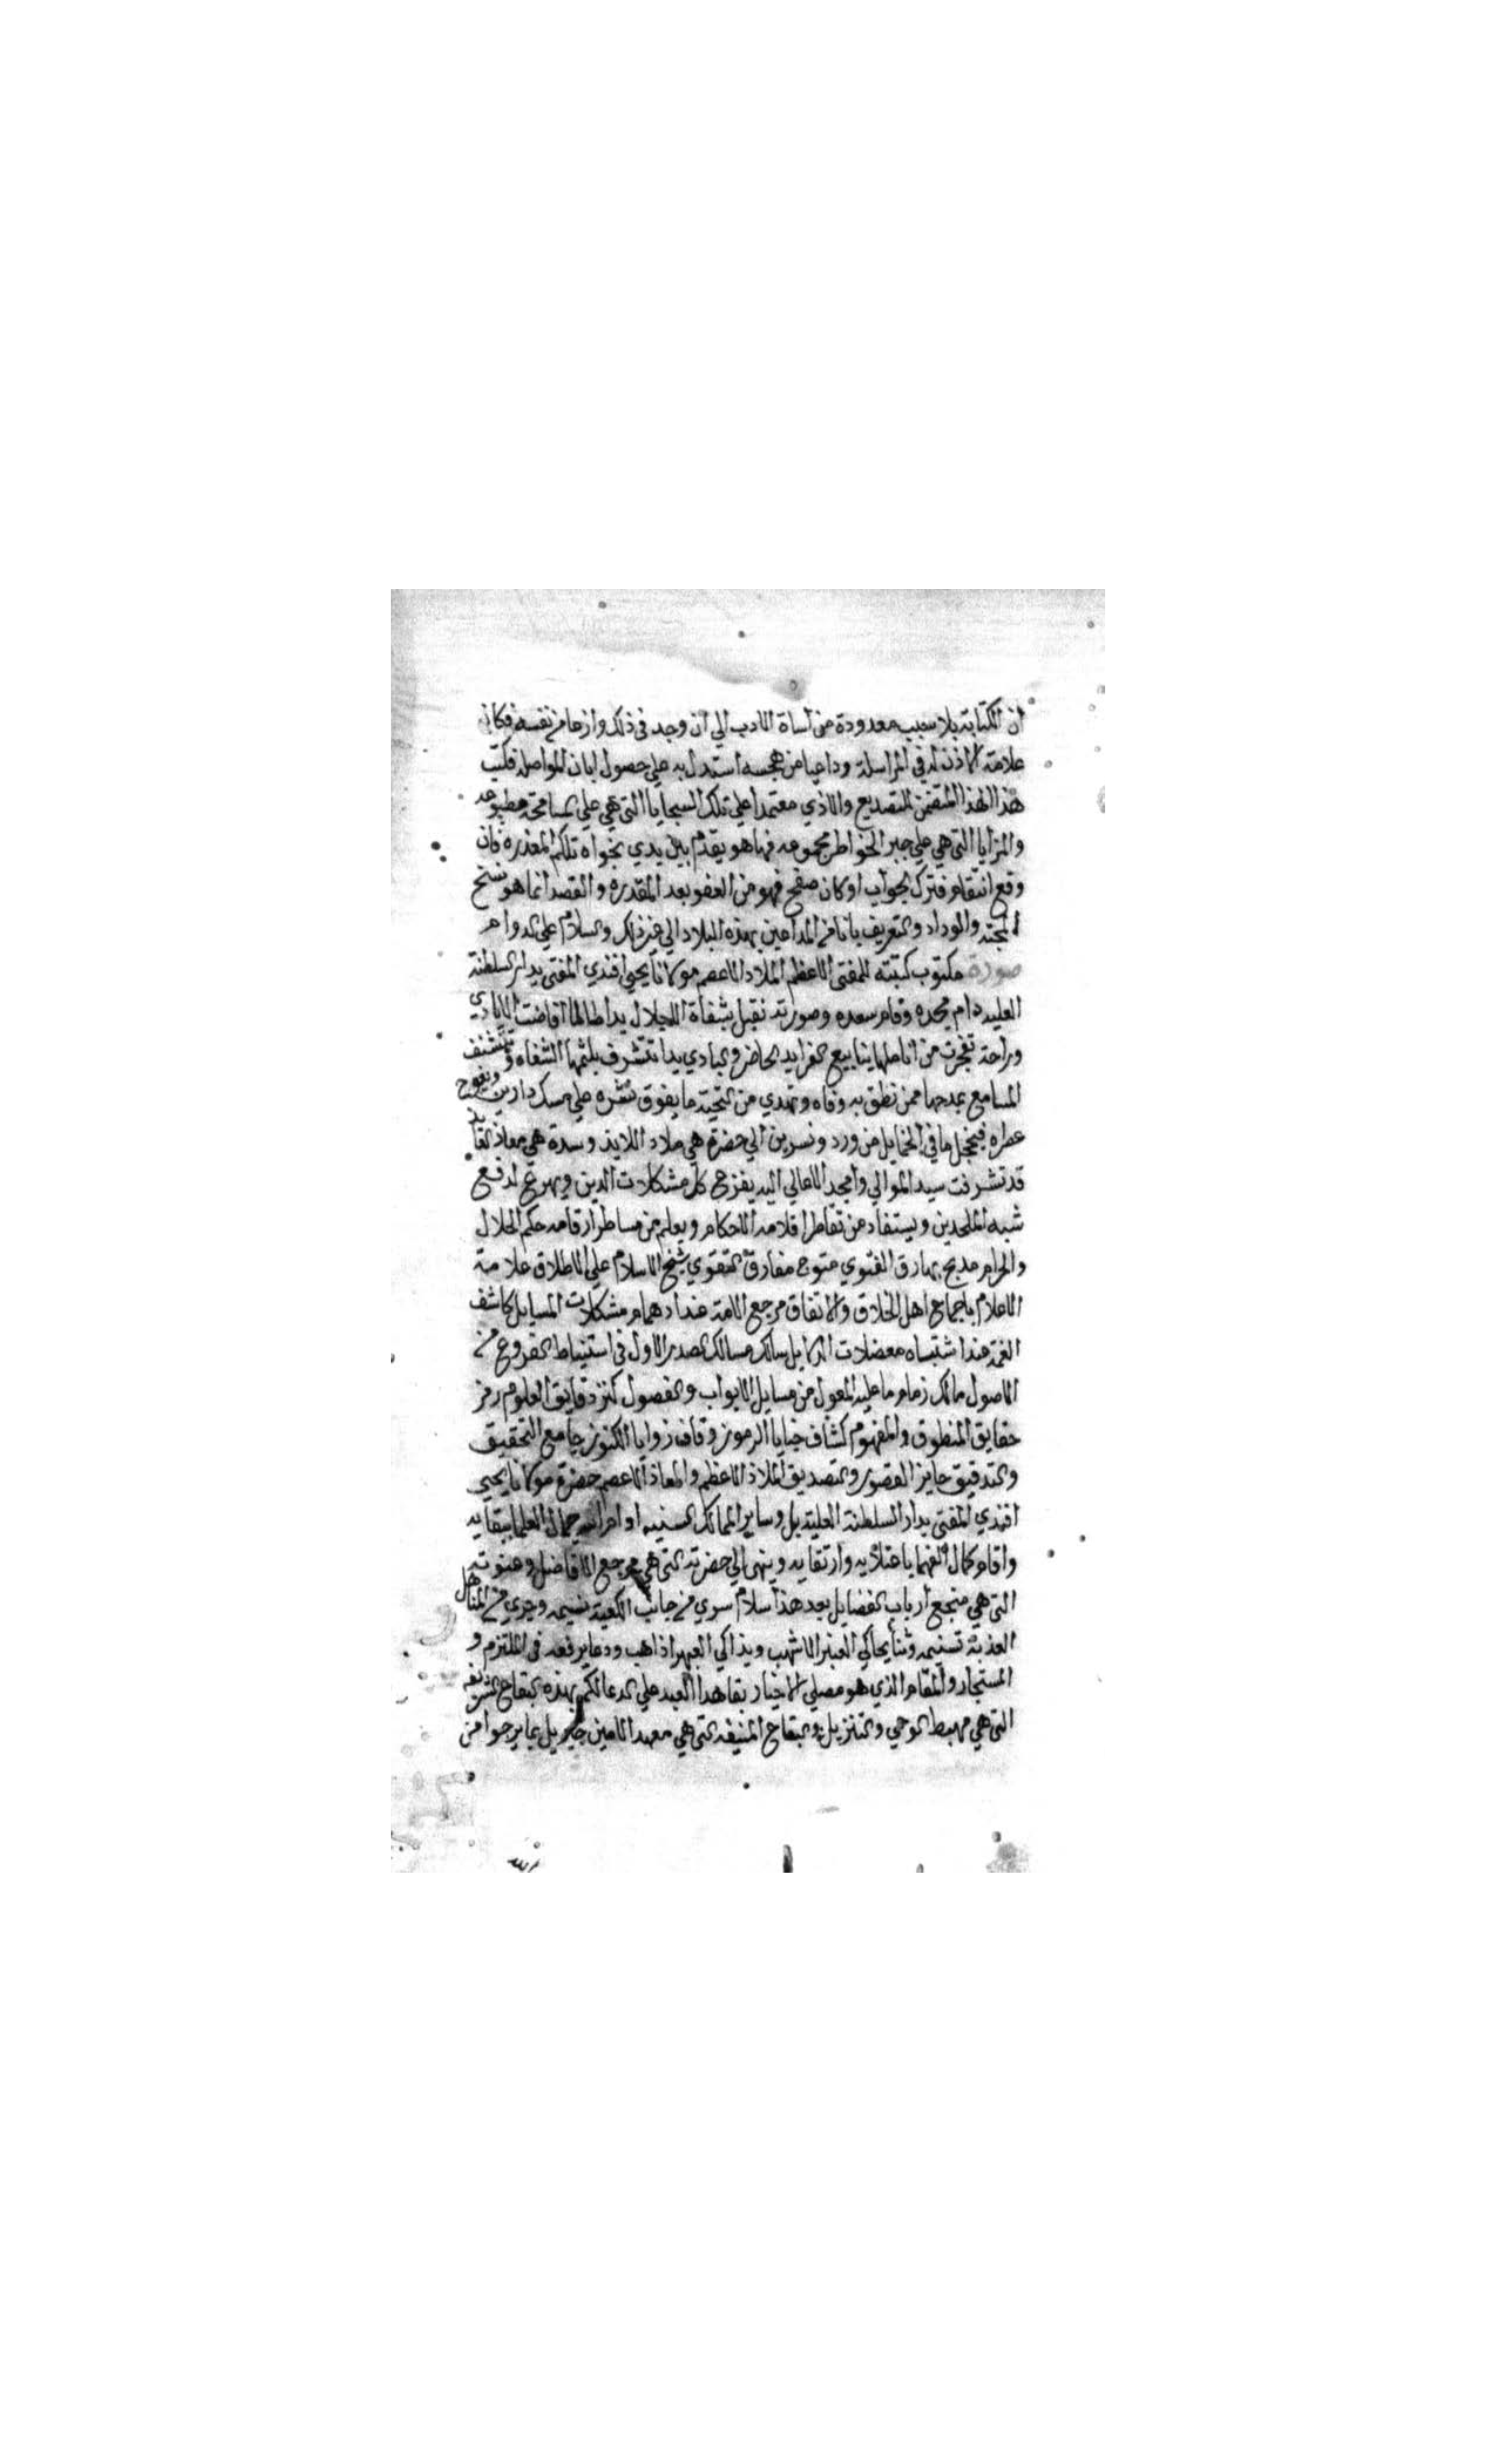 ان الكتابة بلا سبب معدودة من اساة الادب الي ان وجد في ذلك وازعا من نفسه فكان
علامة الاذن له في المراسلة وداعيا من هجسه استدل به علي حصول ابان المواصله فكتب
هذا الهذا المتضمن للتصديع والاذي معتمدا علي تلك السجايا التي هي علي المسامحة مطبوعه
والمزايا التي هي علي جبر الخواطر مجموعه فها هو يقدم بين يدي نجواه تلكم المعذره فان
وقع انتقام فترك الجواب او كان صفح فهو من العفو بعد المقدره والقصد انما هو فتح
المحبة والوداد والتعريف بانا من المداحين بهذه البلاد الي غير ذلك والسلام علي الدوام
صورة مكتوب كتبته للمفتي الاعظم الملاد الاعصم مولانا يحيي افندي المفتي بدار السلطنة
العليه دام مجده وقام سعده وصورته نقبل بشفاة الاجلال يدا طالما افاضت الايادي
وراحة تفجرت من اناملها ينابيع الفرايد للحاضر والبادي يدا تتشرف بلثمها الشفاه و تتشنف
المسامع بمدحها ممن نطق به وفاه ونهدي من التحية ما يفوق نشره علي مسك دارين ويفوح
عطره فيخجل ما في الخمايل من ورد ونسرين الي حضرة هي ملاد اللايذ وسدة هي معاذ العايذ
قد تشرفت سيد الموالي وامجد الاعالي اليه يفزع كل مشكلات الدين ويهرع لدفع
شبه الملحدين ويستفاد من تقاطر اقلامه الاحكام ويعلم من مساطر ارقامه حكم الحلال
والحرام مدبج مهارق الفتوي متوج مفارق التقوي شيخ الاسلام علي الاطلاق علامة
الاعلام باجماع اهل الخلاق والاتفاق مرجع الامة عند ادهمام مشكلات المسايل كاشف
الغمة عند اشتباه معضلات الدلايل سالك مسالك الصدر الاول في استنباط الفروع من
الاصول مالك زمام ما عليه المعول من مسايل الابواب والفصول كنز دقايق العلوم رمز
حقايق المنطوق والمفهوم كشاف خبايا الرموز وقاف زوايا الكنوز جامع التحقيق
والتدقيق حايز التصور والتصديق الملاذ الاعظم والمعاذ الاعصم حضرة مولانا يحيي
افندي المفتي بدار السلطنة العلية بل وساير الممالك السنيه ادام الله جمال العلما ببقايه
واقام كمال الفهما باعتلايه وارتقايه وينهي الي حضرته التي هي مرجع الافاضل وعنوته
التي هي منجع ارباب الفضايل بعد هذا سلام سري من جانب الكعبة نسيمه وجري من المناهل
العذبة تسنيمه وثنا يحاكي العنبر الاشهب ويذاكي العبهر اذا هب ودعا يرفعه في الملتزم و
المستجار والمقام الذي هو مصلي الاخيار بقاهدا العبد علي الدعا لكم بهذه البقاع الشريفه
التي هي مهبط الوحي والتنزيل والبقاع المنيفه التي هي معهد الامين جبريل بما يرجوا من
الله